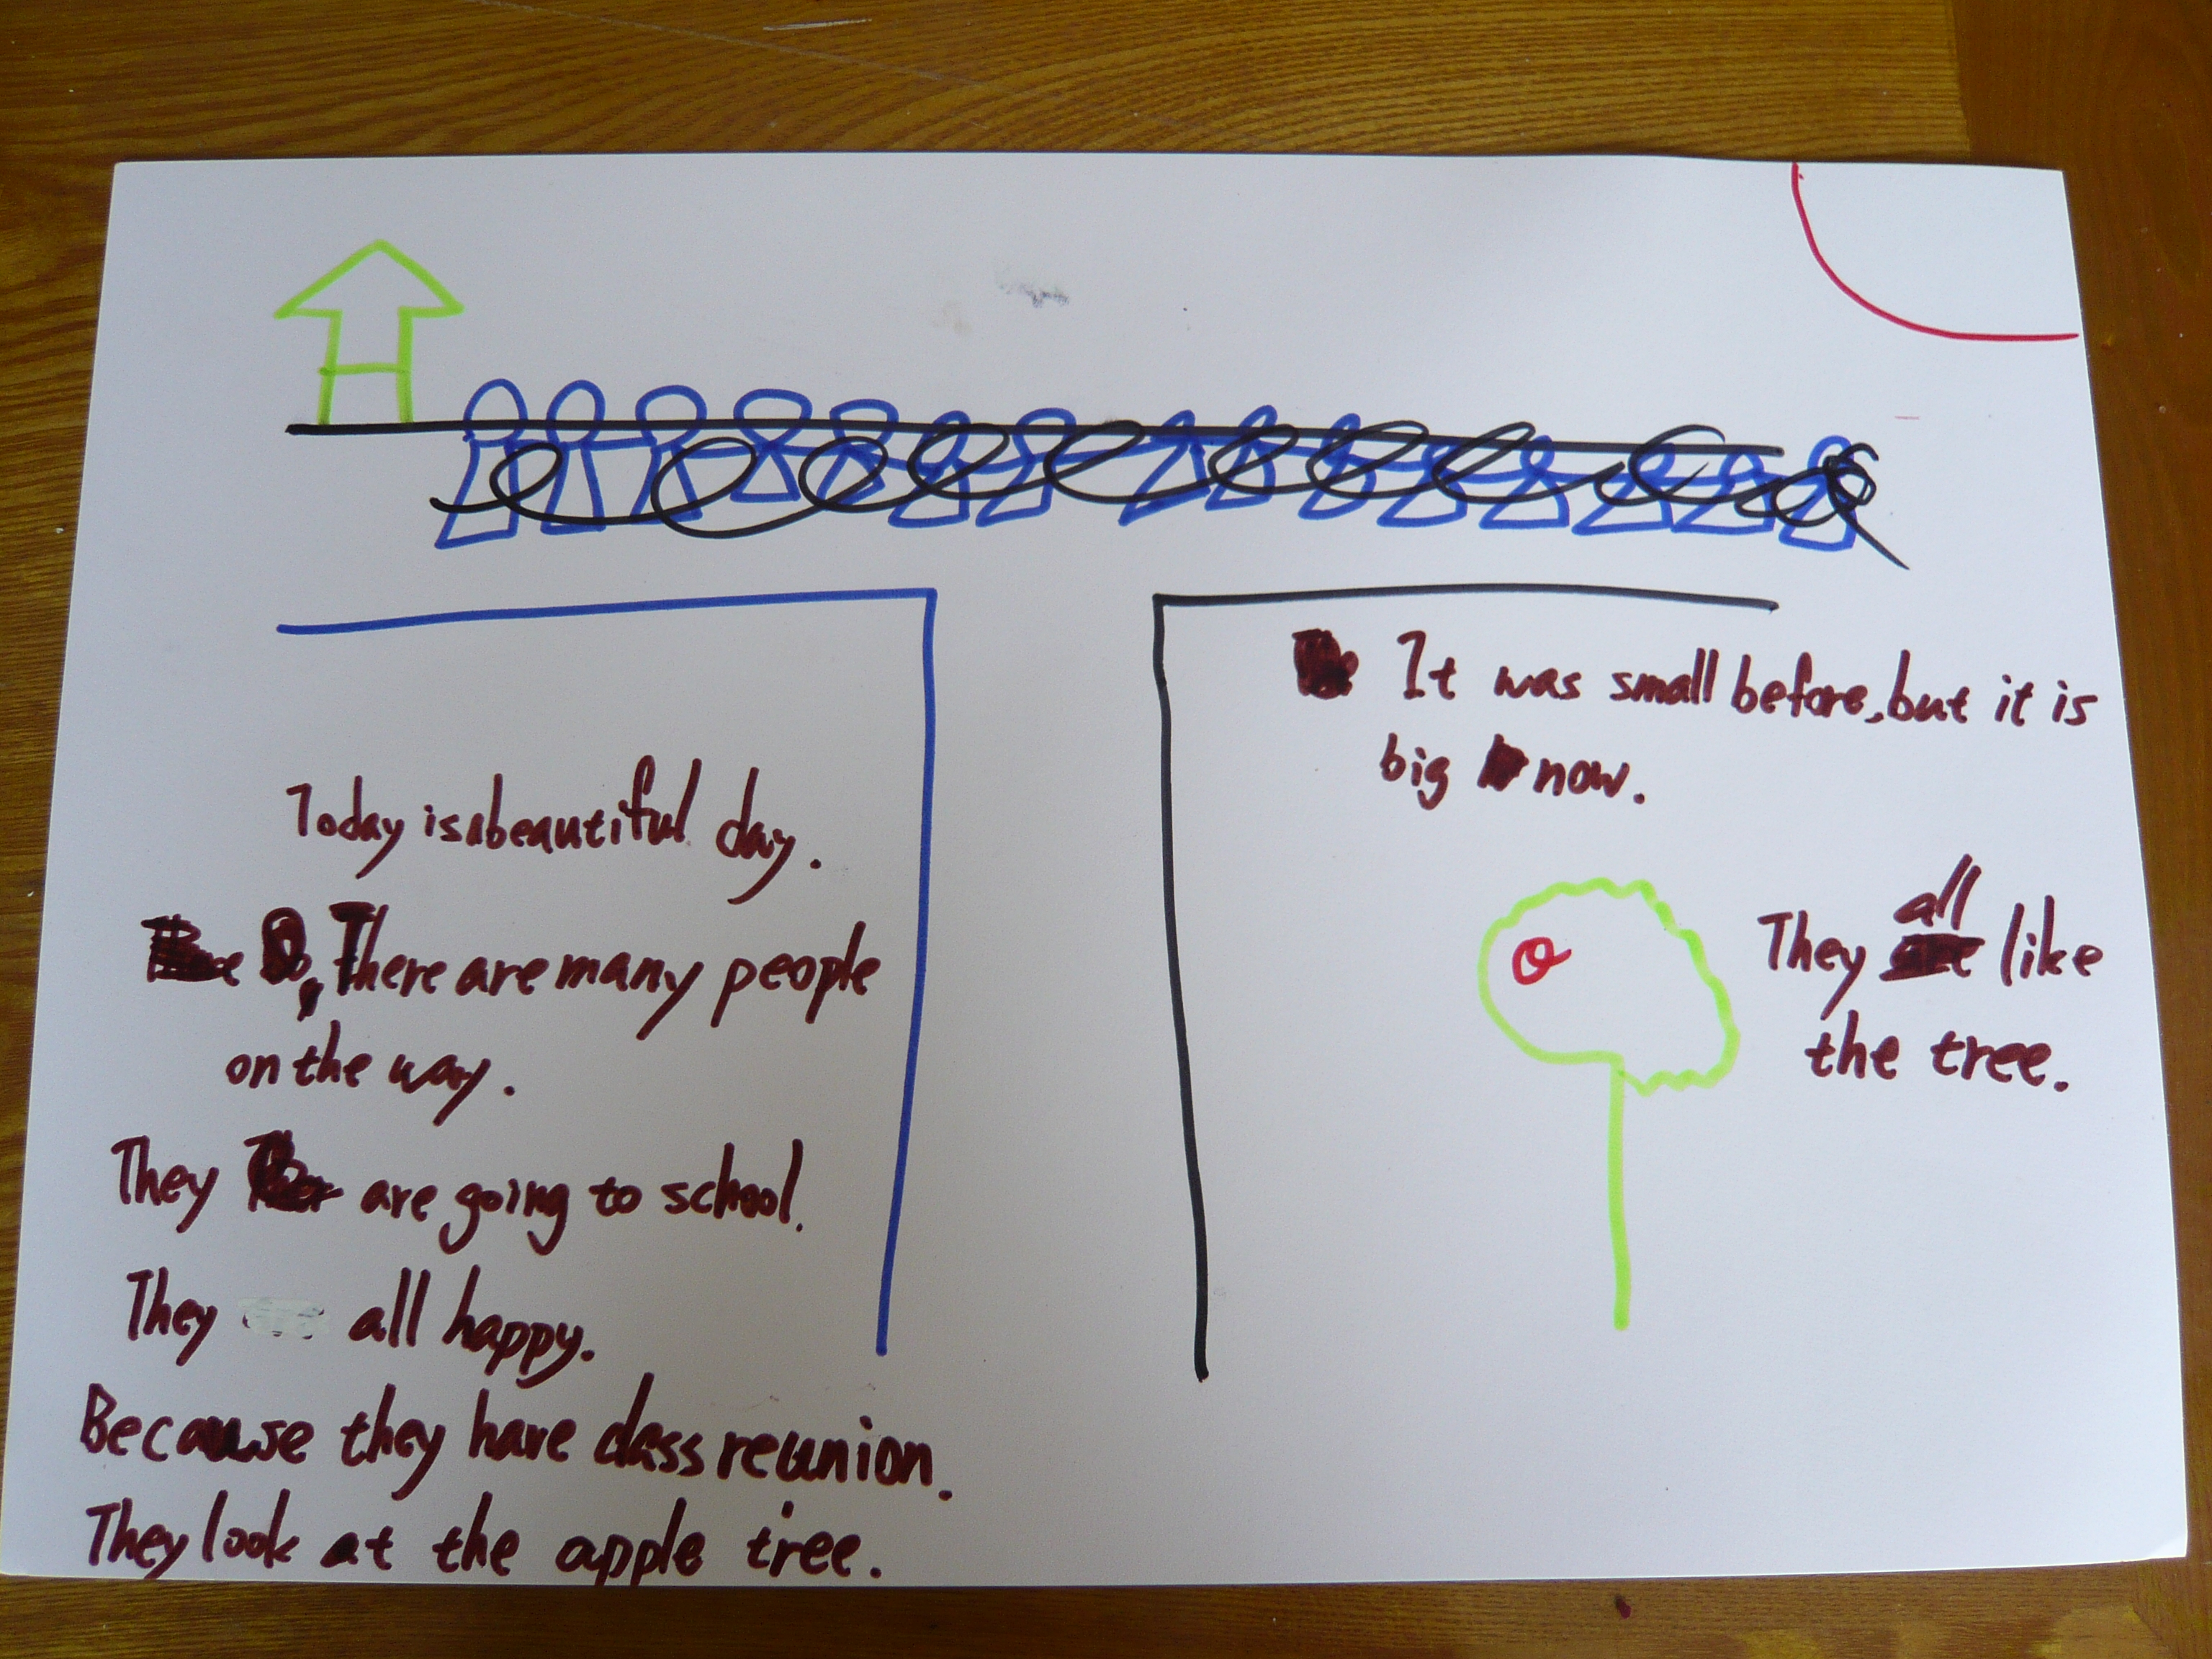 Today is a beautiful day.
There are many people
on the way.
They are going to school.
They all happy.
Because they have class reunion.
They look at the apple tree.
It was small before, but it is
big now.
They all like
the tree.